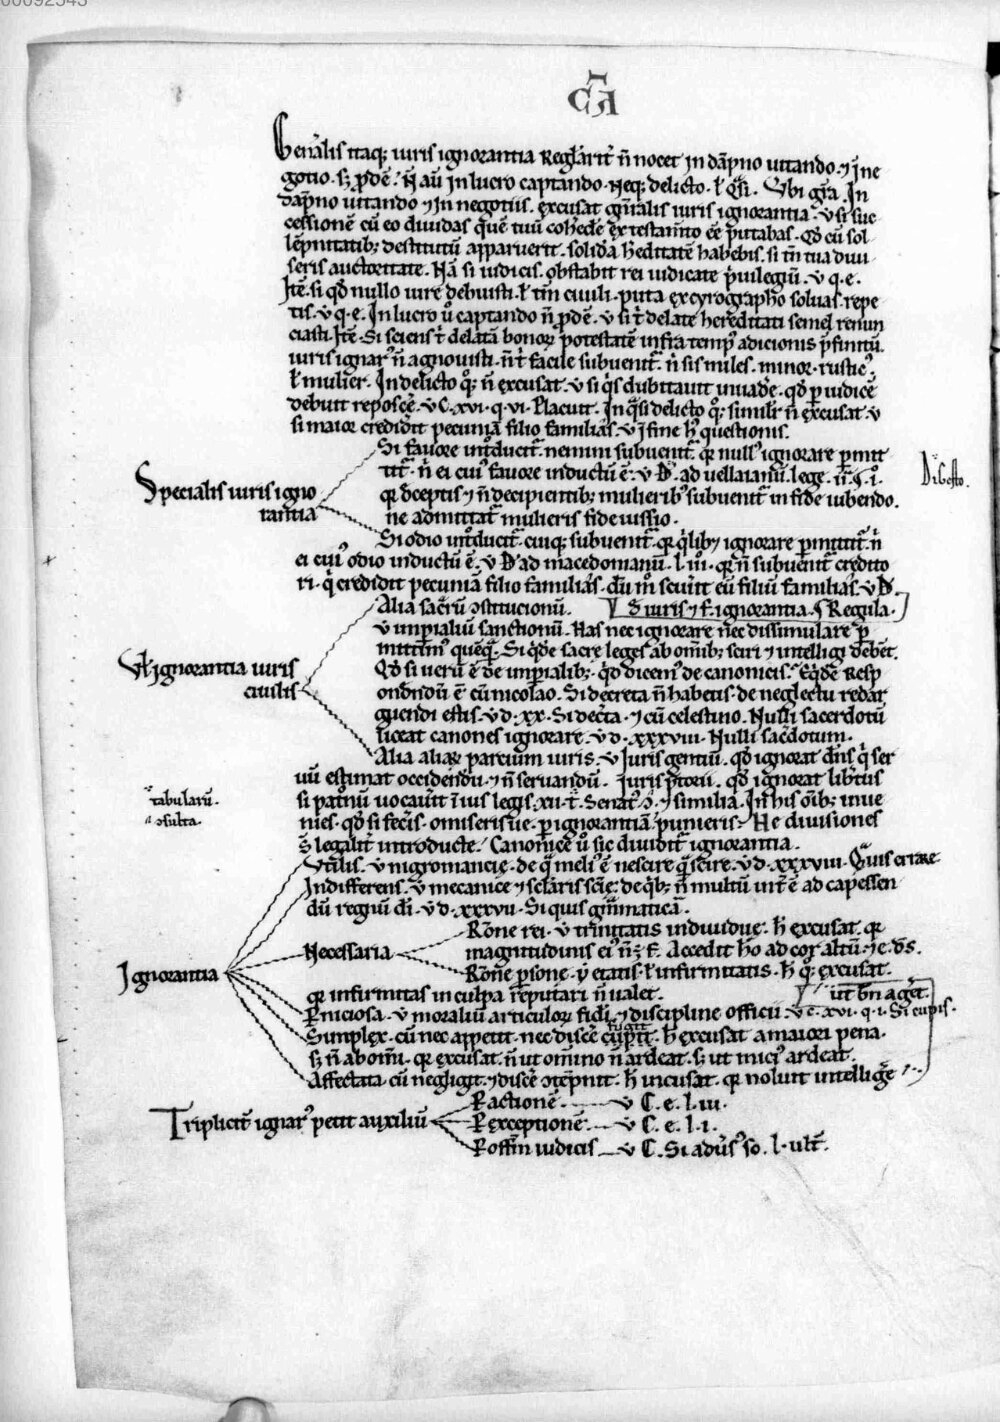 00092545
CA
Gen̄alis itaq; iuris ignorantia Regłarit̄ ñ nocet in dāpno uitando · ⁊ in ne
gotio · s; ꝓdē · Ñ aū in lucro captando · Neq; delicto · ł q̄si · Vbi gr̄a · In
dāpno uitando ⁊ in negotiis · excusat gn̄alis iuris ignorantia · v si suc
cessionē cū eo diuidas quē tuū cohedē ex testam̄to eē putabas · Qđ cū sol
lēpnitatib; destitutū apparuerit · solidā heditatē habebis · si tn̄ tua diui
seris auctoritate · Nā si iudicis · obstabit rei iudicate p̄uilegiū · v q · e ·
Itē · si qđ nullo iure debuisti · ł tm̄ ciuili · puta ex cyrographo soluas · repe
tis · v q · e · In lucro ů captando ñ ꝓdē · v si t̄ delate hereditati semel renun
ciasti · Itē · Si sciens t̄ delatā bonoꝝ potestatē infra temp' adicionis p̄finitū
iuris ignar' ñ agnouisti · ñ t̄ facile subuenit̄ · n̄ sis miles · minor · rustic' ·
ł mulier · In delicto q̊; ñ excusat · v si q̄s dubitauit inuadē · qđ ꝑ iudicē
debuit reposcē · v C · xvi · q · vi · Placuit · In q̄si delicto q̊; similr̄ ñ excusat v
si maior credidit pecuniā filio familias · v ī fine h' questionis.
Specialis iuris igno
rantia
Si fauore int̊ducit̄ · nemini subuenit̄ · qꝛ null' ignorare ꝑmit
tit̄ · n̄ ei cui' fauore inductū ē · v · ad uellaianū · lege
Digesto.
qꝛ deceptis ⁊ ñ decipientib; mulierib' subuenit̄ in fide iubendo.
ne admittat̄ mulieris fideiussio.
Si odio int̊ducit̄ · cuiq; subuenit̄ · qꝛ q̄lib; ignorare ꝑmittit̄ · n̄
ei cui' odio inductū ē · v · ad macedomanū · l · iii · qꝛ ñ subuenit̄ credito
ri · q̄ credidit pecuniā filio familias · dū m̊ sciuit eū filiū familias · v
Alia sac̄rū ↄstitucionū.
iuris ⁊ f · ignorantia · ¶ Regula ·
Vł ignorantia iuris
ciuilis
v imꝑialiū sanctionū · Has nec ignorare nec dissimulare ꝑ
mittim' quēq̄ · Si q̄dē sacre leges ab omīb; sciri ⁊ intelligi debēt.
Qđ si uerū ē de imꝑialib; · qđ dicem' de canonicis · Eq̄dē Resp
ondn̄dū ē cū nicolao · Si decreta ñ habetis · de neglectu redar
guendi estis · v d · xx · Si decta · ⁊ cū celestino · Nulli sacerdotū
liceat canones ignorare · v d · xxxviii · Nulli saćdotum ·
Alia aliaꝝ parcium iuris · v Juris gentiū · qđ ignorat dn̄s q̄ ser
uū estimat occidendū · ⁊ ñ seruandū · Juris p̄torii · qđ ignorat lib̄tus
tabularū.
ↄsulta.
si patnū uocauit ī ius legis · xii · t̄ · Senat' ɔ̄ · ⁊ similia · In his om̄ib; inue
nies · qđ si feceris · omiseris ue · ꝑ ignorantiā punieris · He diuisiones
s̄ legalit̄ introducte · Canonice ů sic diuidit̄ ignorantia ·
Vtilis · v nigromancie · de q̄ meli' ē nescire q̄ scire · v d · xxxviii · Quis erare
Indifferens · v mecanice ⁊ scłaris scīe · de q̄b; ñ multū int̄ ē ad capessen
dū regnū dī · v d · xxxvii · Si quis gm̄aticā ·
Ignorantia
Necessaria
Rōne rei · v trinitatis indiuidue · h̄ excusat · qꝛ
magnitudinis ei' ñ ; f̄ · Accedit hō ad cor altū · ⁊ c · d̄s.
Rōne ꝑsone · v etatis · ł infirmitatis · h̄ q̊; excusat ·
qꝛ infirmitas in culpa reputari ñ ualet ·
ut bn̄ aget̄
Pniciosa · v moraliū articuloꝝ fidī · ⁊ discipline officii · v c · xvi · q · i · Si cupis ·
Simplex · cū nec appetit · nec discē
fugit
h̄ excusat a maiori pena ·
s; ñ ab omī · qꝛ excusat · ñ ut omīno ñ ardeat · s; ut mici' ardeat ·
Affectata · cū negligit · ⁊ discē ↄtēpnit · h̄ incusat · qꝛ noluit intelligē ·
Triplicit̄ ignar' petit auxiliū
P actionē — v C · e · l · iii ·
P exceptionē — v C · e · l · i ·
P offm̄ iudicis — v C · Si adūs' so · l · ult̄ ·